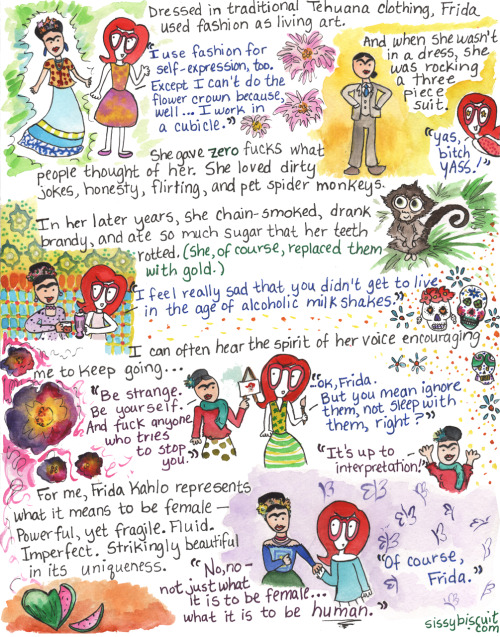 Dressed in traditional Tehuana clothing, Frida
used fashion as living art.
"I use fashion for
self-expression, too.
Except I can't do the
flower crown because,
well... I work in
a cubicle."
And when she wasn't
in a dress, she
was rocking
a three
piece
suit.
"yas,
bitch
YASS!"
She gave zero fucks what
people thought of her. She loved dirty
jokes, honesty, flirting, and pet spider monkeys.
In her later years, she chain-smoked, drank
brandy, and ate so much sugar that her teeth
rotted. (She, of course, replaced them
with gold.)
"I feel really sad that you didn't get to live
in the age of alcoholic milkshakes."
I can often hear the spirit of her voice encouraging
me to keep going...
"Be strange.
Be yourself.
And fuck anyone
who tries
to stop
you."
"...OK, Frida.
But you mean ignore
them, not sleep with
them, right?"
"It's up to
interpretation!"
For me, Frida Kahlo represents
what it means to be female—
Powerful, yet fragile. Fluid.
Imperfect. Strikingly beautiful
in its uniqueness.
"No, no–
not just what
it is to be female...
what it is to be human."
"Of course,
Frida."
sissybiscuit
.com